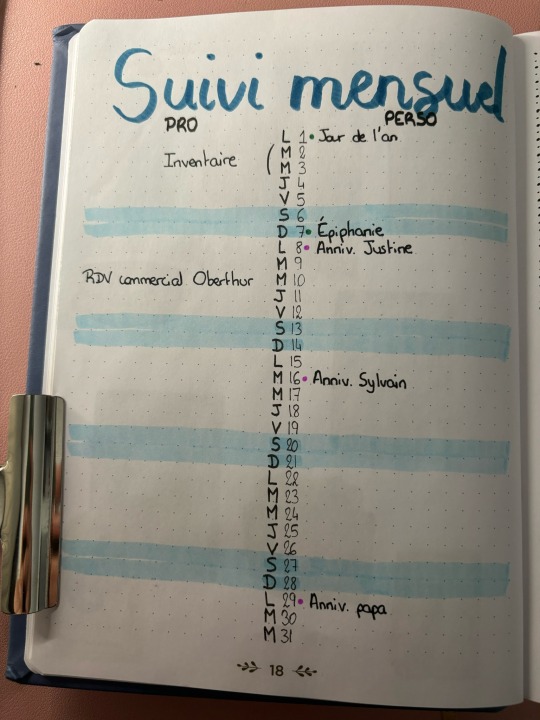 Suivi mensuel
PRO PERSO
L 1 • Jour de l'an
Inventaire ( M 2
M 3
J 4
V 5
S 6
D 7 • Épiphanie
L 8 • Anniv. Justine
M 9
RDV commercial Oberthur M 10
J 11
V 12
S 13
D 14
L 15
M 16 • Anniv. Sylvain
M 17
J 18
V 19
S 20
D 21
L 22
M 23
M 24
J 25
V 26
S 27
D 28
L 29 • Anniv. papa
M 30
M 31
18